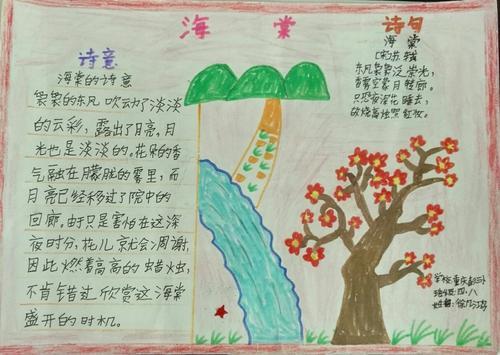 海棠
诗意
海棠的诗意
袅袅的东风吹动了淡淡
的云彩，露出了月亮，月
光也是淡淡的。花朵的香
气融在朦胧的雾里，而
月亮已经移过了院中的
回廊。由于只是害怕在这深
夜时分，花儿就会凋谢，
因此燃着高高的蜡烛，
不肯错过欣赏这海棠
盛开的时机。
诗句
海棠
[宋]苏轼
东风袅袅泛崇光，
香雾空蒙月转廊。
只恐夜深花睡去，
故烧高烛照红妆。
学校:重庆
班级:四、八
姓名:徐